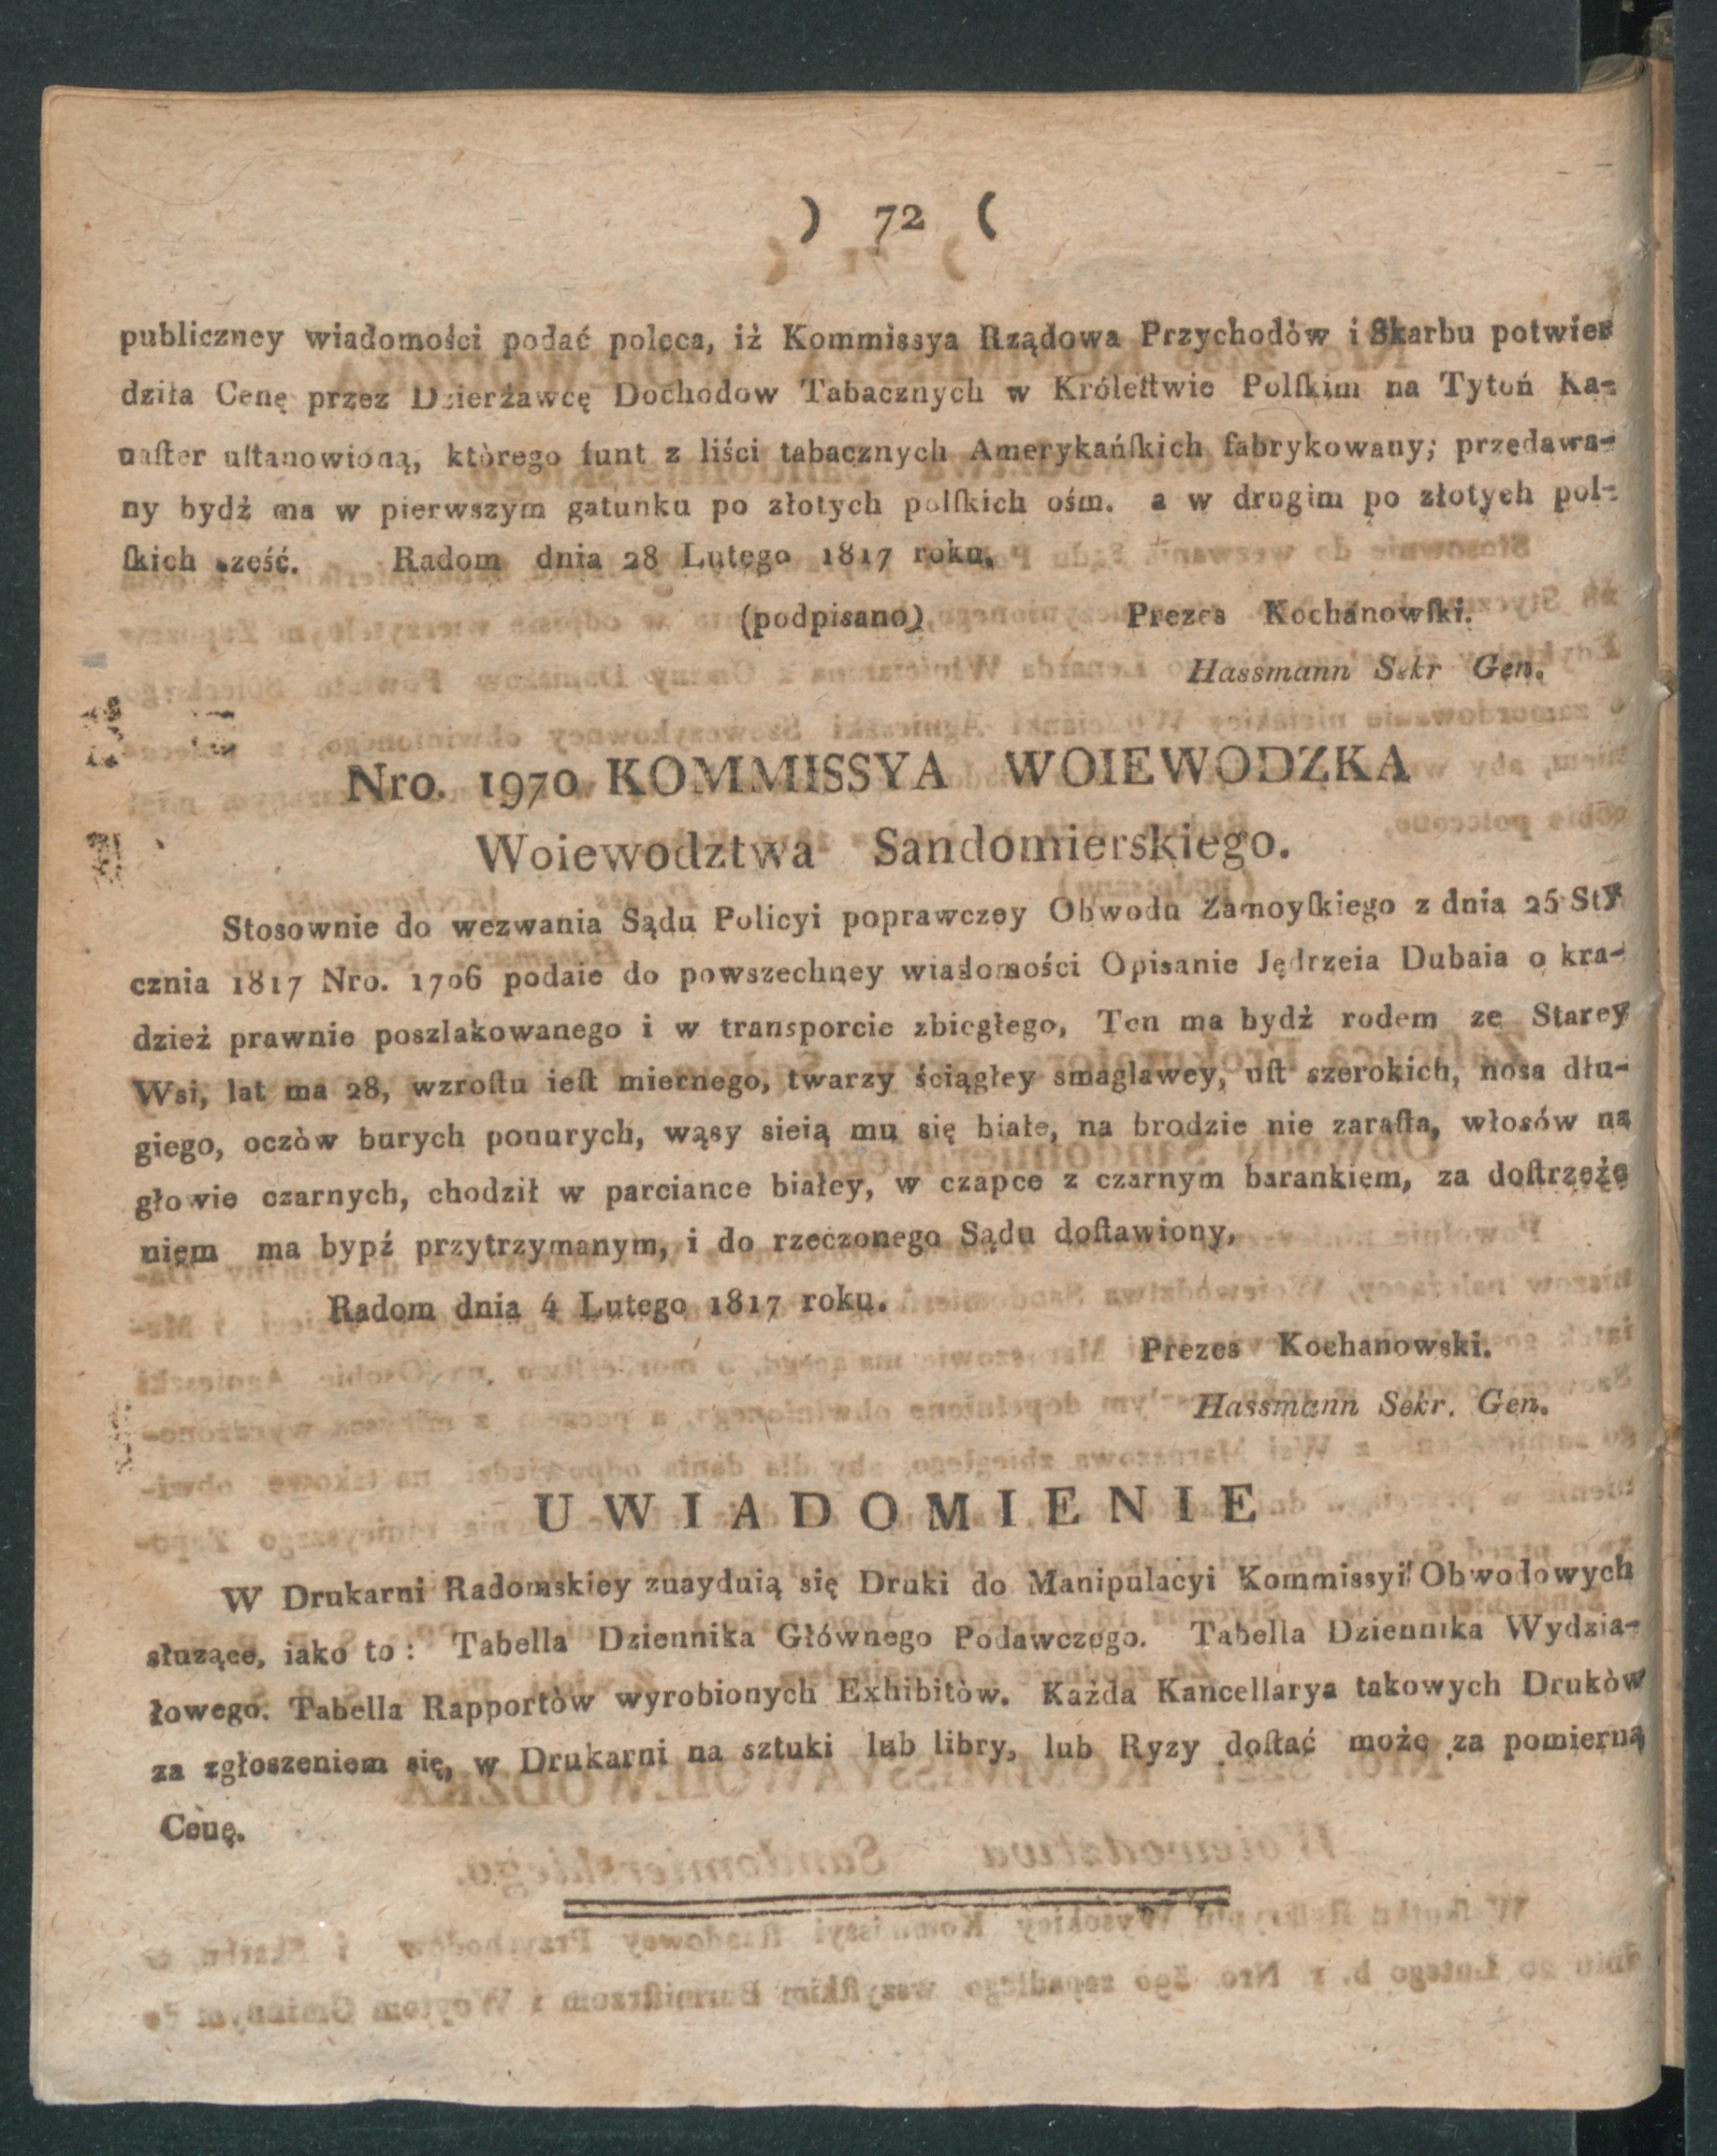 ) 72 (
publiczney wiadomości podać poleca, iż Kommissya Rządowa Przychodòw i Skarbu potwier
dziła Cenę przez Dzierżawcę Dochodow Tabacznych w Króleſtwie Polſkim na Tytoń Ka-
naſter uſtanowioną, ktòrego funt z liści tabacznych Amerykańſkich fabrykowany; przedawa-
ny bydź ma w pierwszym gatunku po złotych polſkich ośm. a w drugim po złotych pol-
ſkich sześć. Radom dnia 28 Lutego 1817 roku.
(podpisano) Prezes Kochanowſki.
Hassmann Sekr Gen.
Nro. 1970 KOMMISSYA WOIEWODZKA
Woiewodztwa Sandomierskiego.
Stosownie do wezwania Sądu Policyi poprawczey Obwodu Zamoyſkiego z dnia 25 Sty
cznia 1817 Nro. 1706 podaie do powszechney wiadomości Opisanie Jędrzeia Dubaia o kra-
dzież prawnie poszlakowanego i w transporcie zbiegłego, Ten ma bydź rodem ze Starey
Wsi, lat ma 28, wzroſtu ieſt miernego, twarzy ściągłey smaglawey, uſt szerokich, nosa dłu-
giego, oczòw burych ponurych, wąsy sieią mu się białe, na brodzie nie zaraſta, włosów na
głowie czarnych, chodził w parciance białey, w czapce z czarnym barankiem, za doſtrzeże
niem ma bypź przytrzymanym, i do rzeczonego Sądu doſtawiony,
Radom dnia 4 Lutego 1817 roku.
Prezes Kochanowski.
Hassmann Sekr. Gen.
UWIADOMIENIE
W Drukarni Radomskiey znayduią się Druki do Manipulacyi Kommissyi Obwodowych
słuzące, iako to : Tabella Dziennika Głównego Podawczego. Tabella Dziennika Wydzia-
łowego. Tabella Rapportòw wyrobionych Exhibitòw. Każda Kancellarya takowych Drukòw
za zgłoszeniem się, w Drukarni na sztuki lub libry, lub Ryzy doſtać może za pomierną
Cenę.